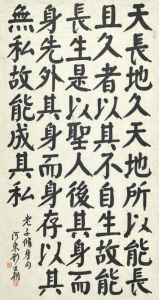 天長地久天地所能長
且久者以其不自生故能
長生是以聖人後其身而
身先外其身而身存以其
無私故能成其私
老子脩身句
河東